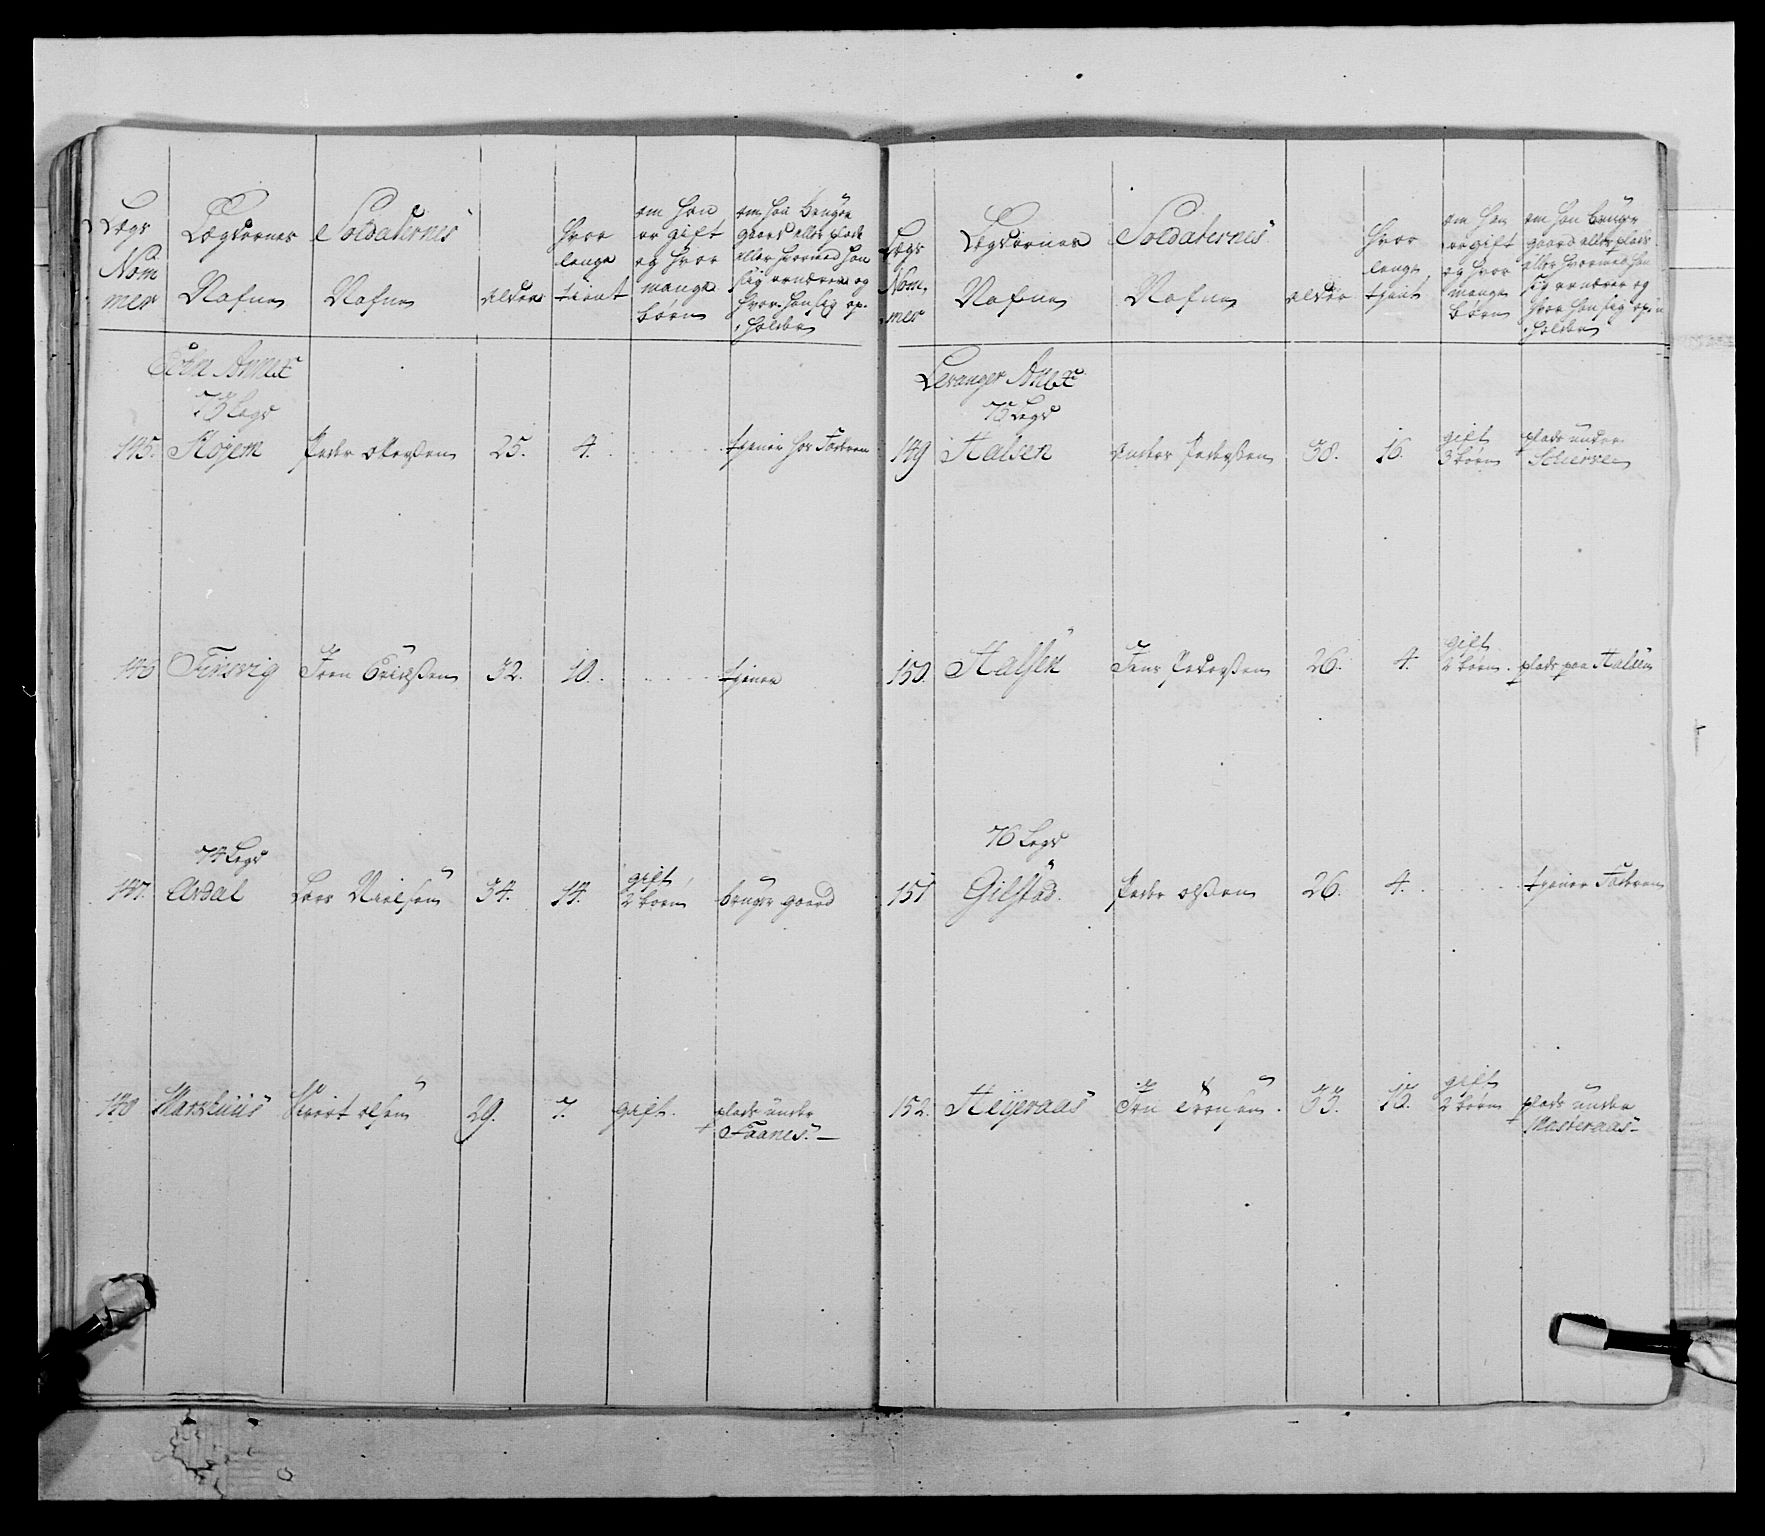 Lægs
Nom
mer
Lægdernes
Nafne
Soldaternes
Nafne
alder
hvor
lenge
tient
om han
er gift
og hvor
mange
børn
om han bruger
gaard eller plads
eller hvormed han
sig ernærer og
hvor han sig op-
holder
Annex
73 Legd
145. Rojem Peder 25. 4. tjener hos Faderen
146 Finsvig Iven Erichsen 32. 10. tjener
74 Legd
147. Ardal Lars Nielsen 34. 14. gift 2 børn bruger gaard
148 Marchuus Sivert olsen 29. 7. gift. plads under
Faanes.
Lægs
Nom
mer
Lægdernes
Nafne
Soldaternes
Nafne
alder
hvor
lenge
tjent
om han
er gift
og hvor
mange
børn
om han bruger
gaard eller plads
eller hvormed han
sig ernærer og
hvor han sig op
holder
Levanger Anex
75 Legd
149 Halsen Anders Pedersen 38. 16. gift 3 børn plads under
150. Halsen Jens Pedersen 26. 4. gift 2 børn. plads paa Halsen
76 Legd
151 Gilstad. Peder olsen 26. 4. tjener Faderen
152. Heijeraas 33. 15. gift 2 børn plads under
Masteraas